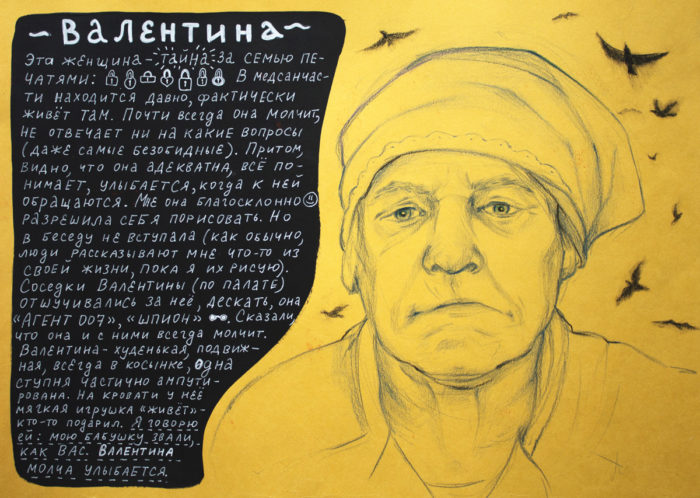 ~ВАЛЕНТИНА~
Эта женщина - тайна за семью пе-
чатями: В медсанчас-
ти находится давно, фактически
живёт там. Почти всегда она молчит,
не отвечает ни на какие вопросы
(даже самые безобидные). Притом,
видно, что она адекватна, всё по-
нимает, улыбается, когда к ней
обращаются. Мне она благосклонно
разрешила себя порисовать. Но
в беседу не вступала (как обычно,
люди рассказывают мне что-то из
своей жизни, пока я их рисую).
Соседки Валентины (по палате)
отшучивались за неё, дескать, она
"Агент 007", "шпион" . Сказали,
что она и с ними всегда молчит.
Валентина - худенькая, подвиж-
ная, всегда в косынке, одна
ступня частично ампути-
рована. На кровати у неё
мягкая игрушка "живёт" -
кто-то подарил. Я говорю
ей: мою бабушку звали,
как Вас. Валентина
молча улыбается.